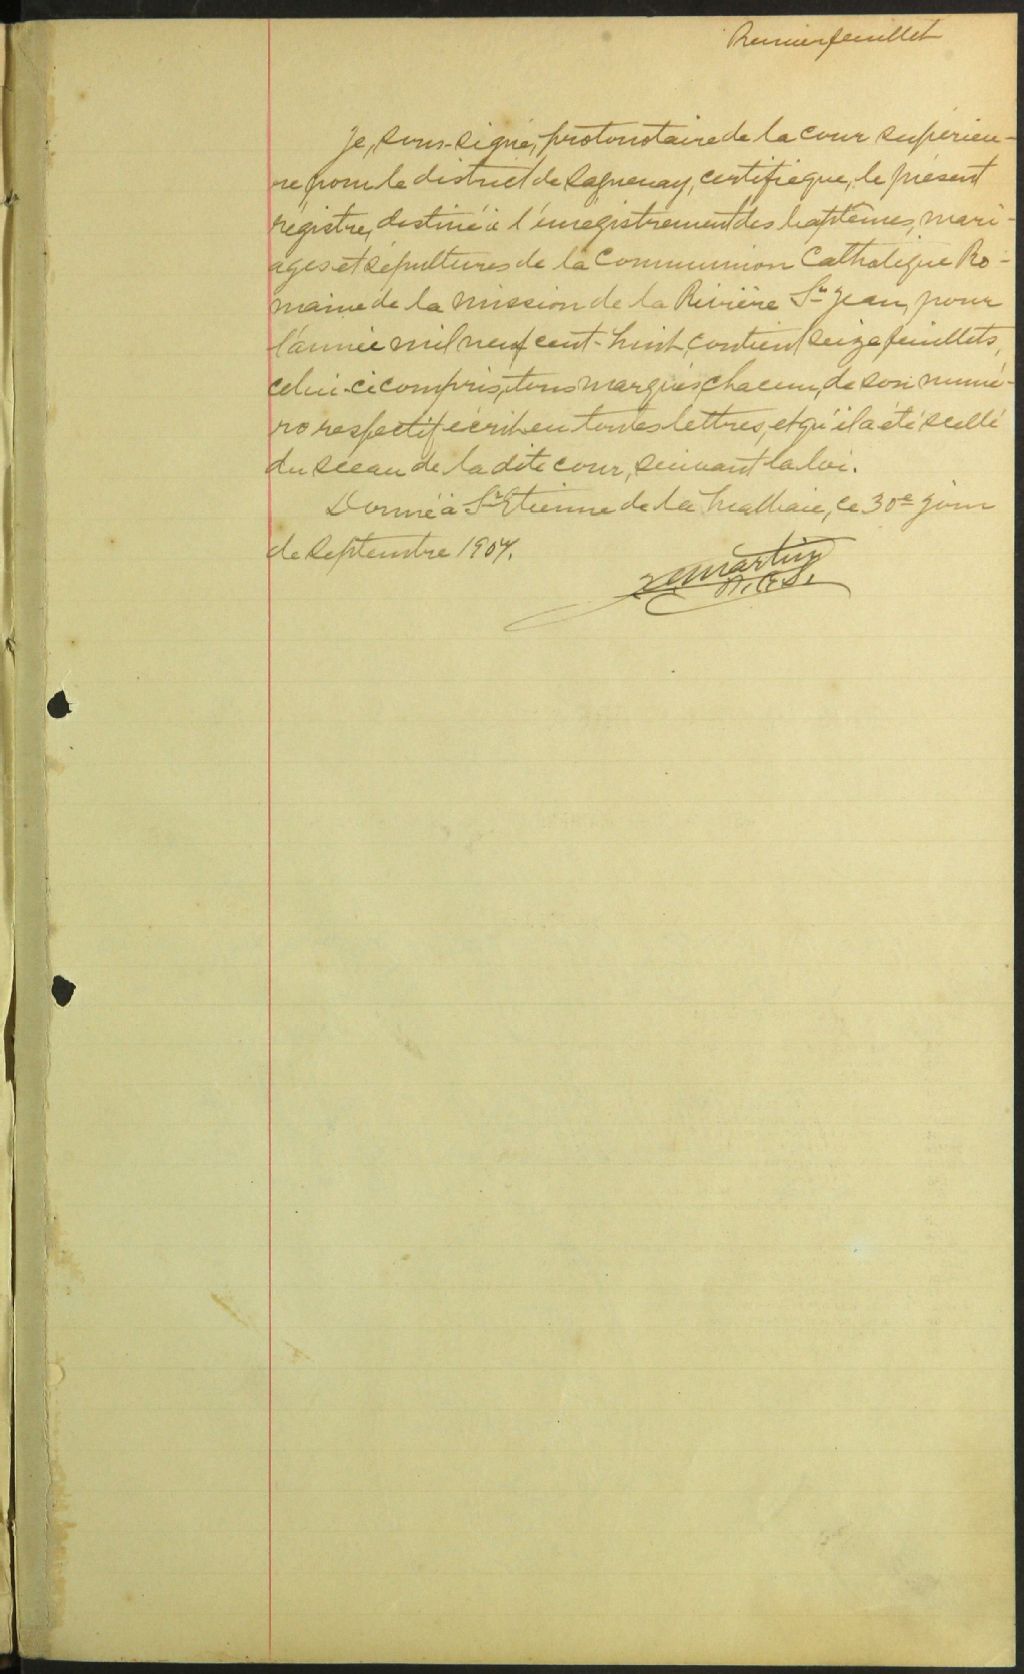 Premier feuillet
Je, sous-signé, protonotaire de la cour supérieu-
re, pour le district de Saguenay, certifie que, le présent
régistre, destiné à l'enregistrement des baptêmes, mari-
ages et sépultures de la Communion Catholique Ro-
maine de la mission de la Rivière St Jean, pour
l'année mil neuf cent-huit, contient seize feuillets,
celui-ci compris, tous marqués, chacun, de son numé-
ro respectif écrit en toutes lettres, et qu'il a été scellé
du sceau de la dite cour, suivant la loi.
Donné à St Etienne de la Malbaie, ce 30e jour
de septembre 1907.
Martin
P.C.S.